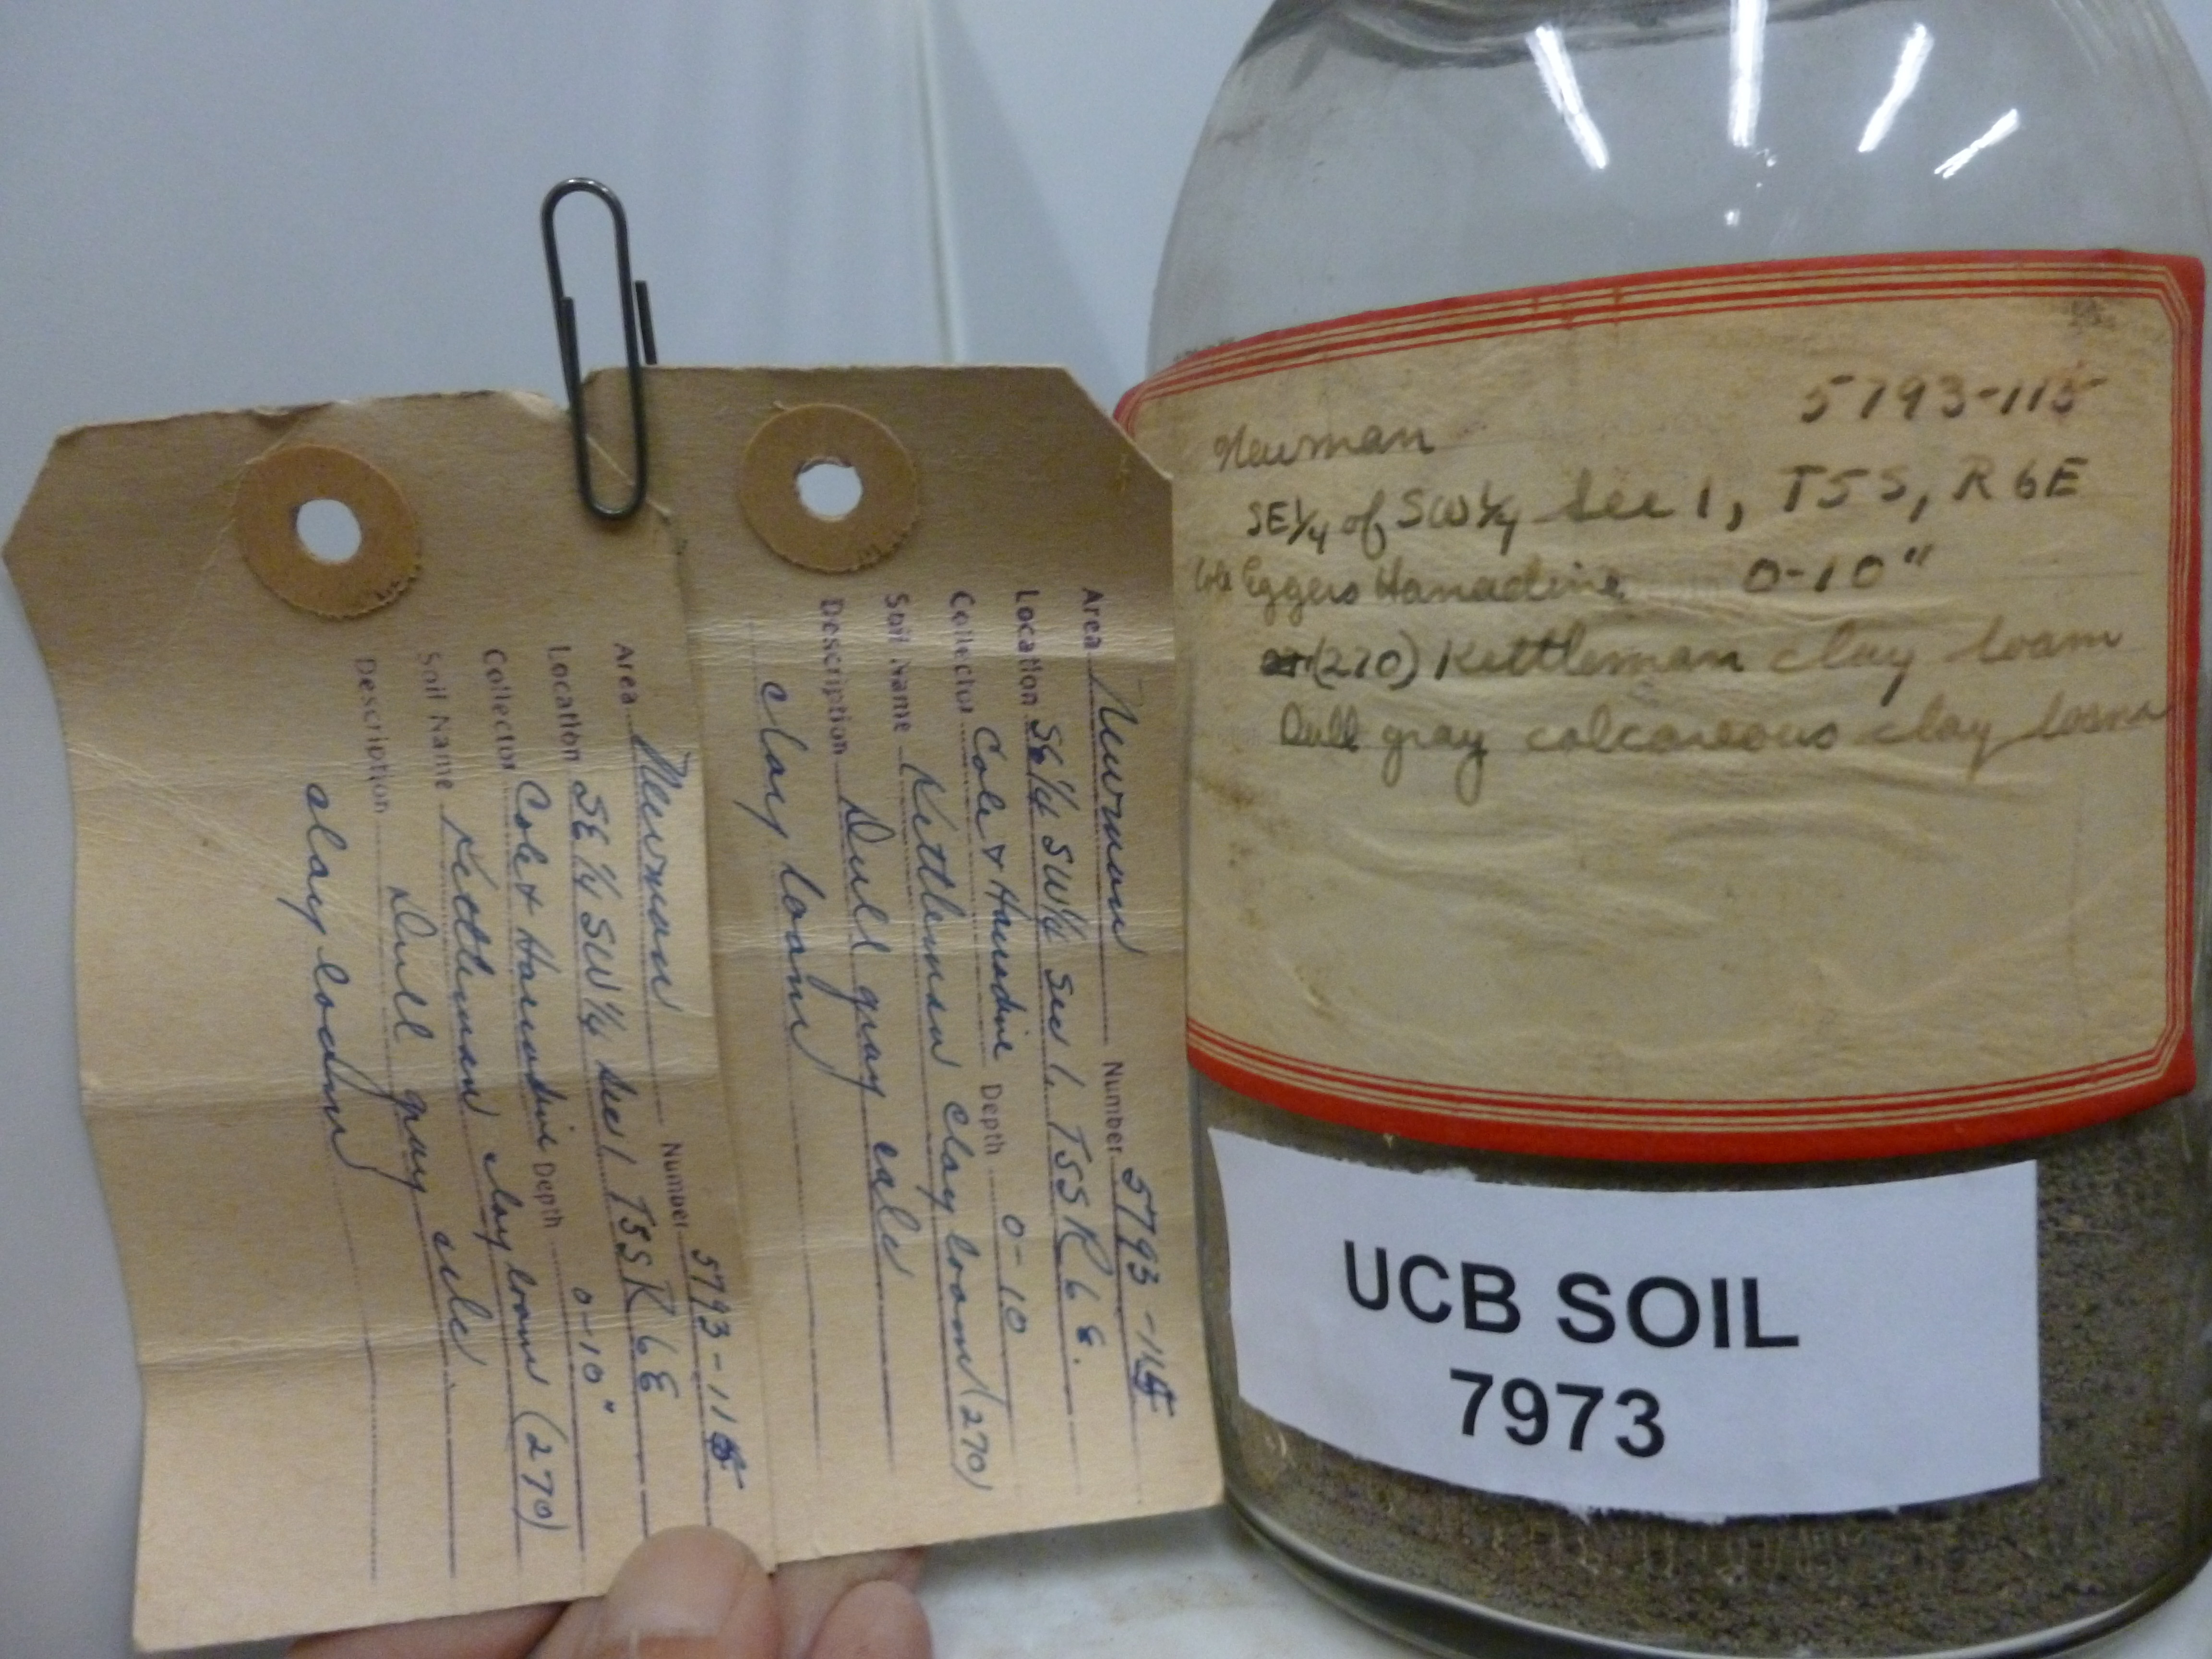 Area Newman Number 5793-115
Location SE 1/4 SW 1/4 Sec 1 T5S R6E
Collector Cole & Harradine Depth 0-10"
Soil Name Kettleman clay loam (270)
Description Dull gray calc.
clay loam
Area Newman Number 5793-115
Location SE 1/4 SW 1/4 Sec 1. T5S R6E.
Collector Cole & Harradine Depth 0-10
Soil Name Kettleman clay loam (270)
Description Dull gray calc
clay loam
5793-115
Newman
SE 1/4 of SW 1/4 Sec 1, T5S, R6E
Cole Eggers Harradine 0-10"
(270) Kettleman clay loam
Dull gray calcareous clay loam
UCB SOIL
7973